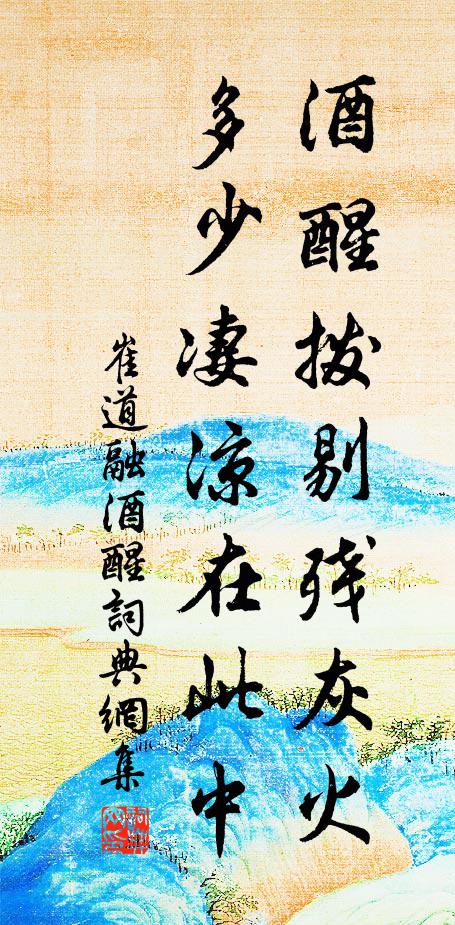 酒醒拨剔残灰火
多少凄凉在此中
崔道融酒醒詞典網集